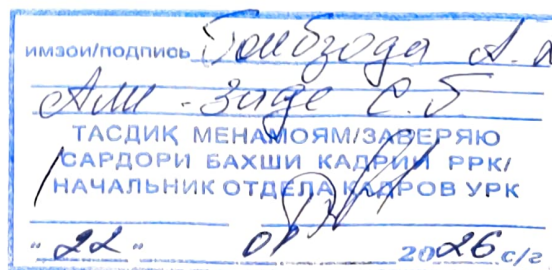 имзои/подпись Гоибзода А.
Али-заде С.Б
ТАСДИҚ МЕНАМОЯМ/ЗАВЕРЯЮ
САРДОРИ БАХШИ КАДРИИ РРК/
НАЧАЛЬНИК ОТДЕЛА КАДРОВ УРК
"22" 01 2026 с/г